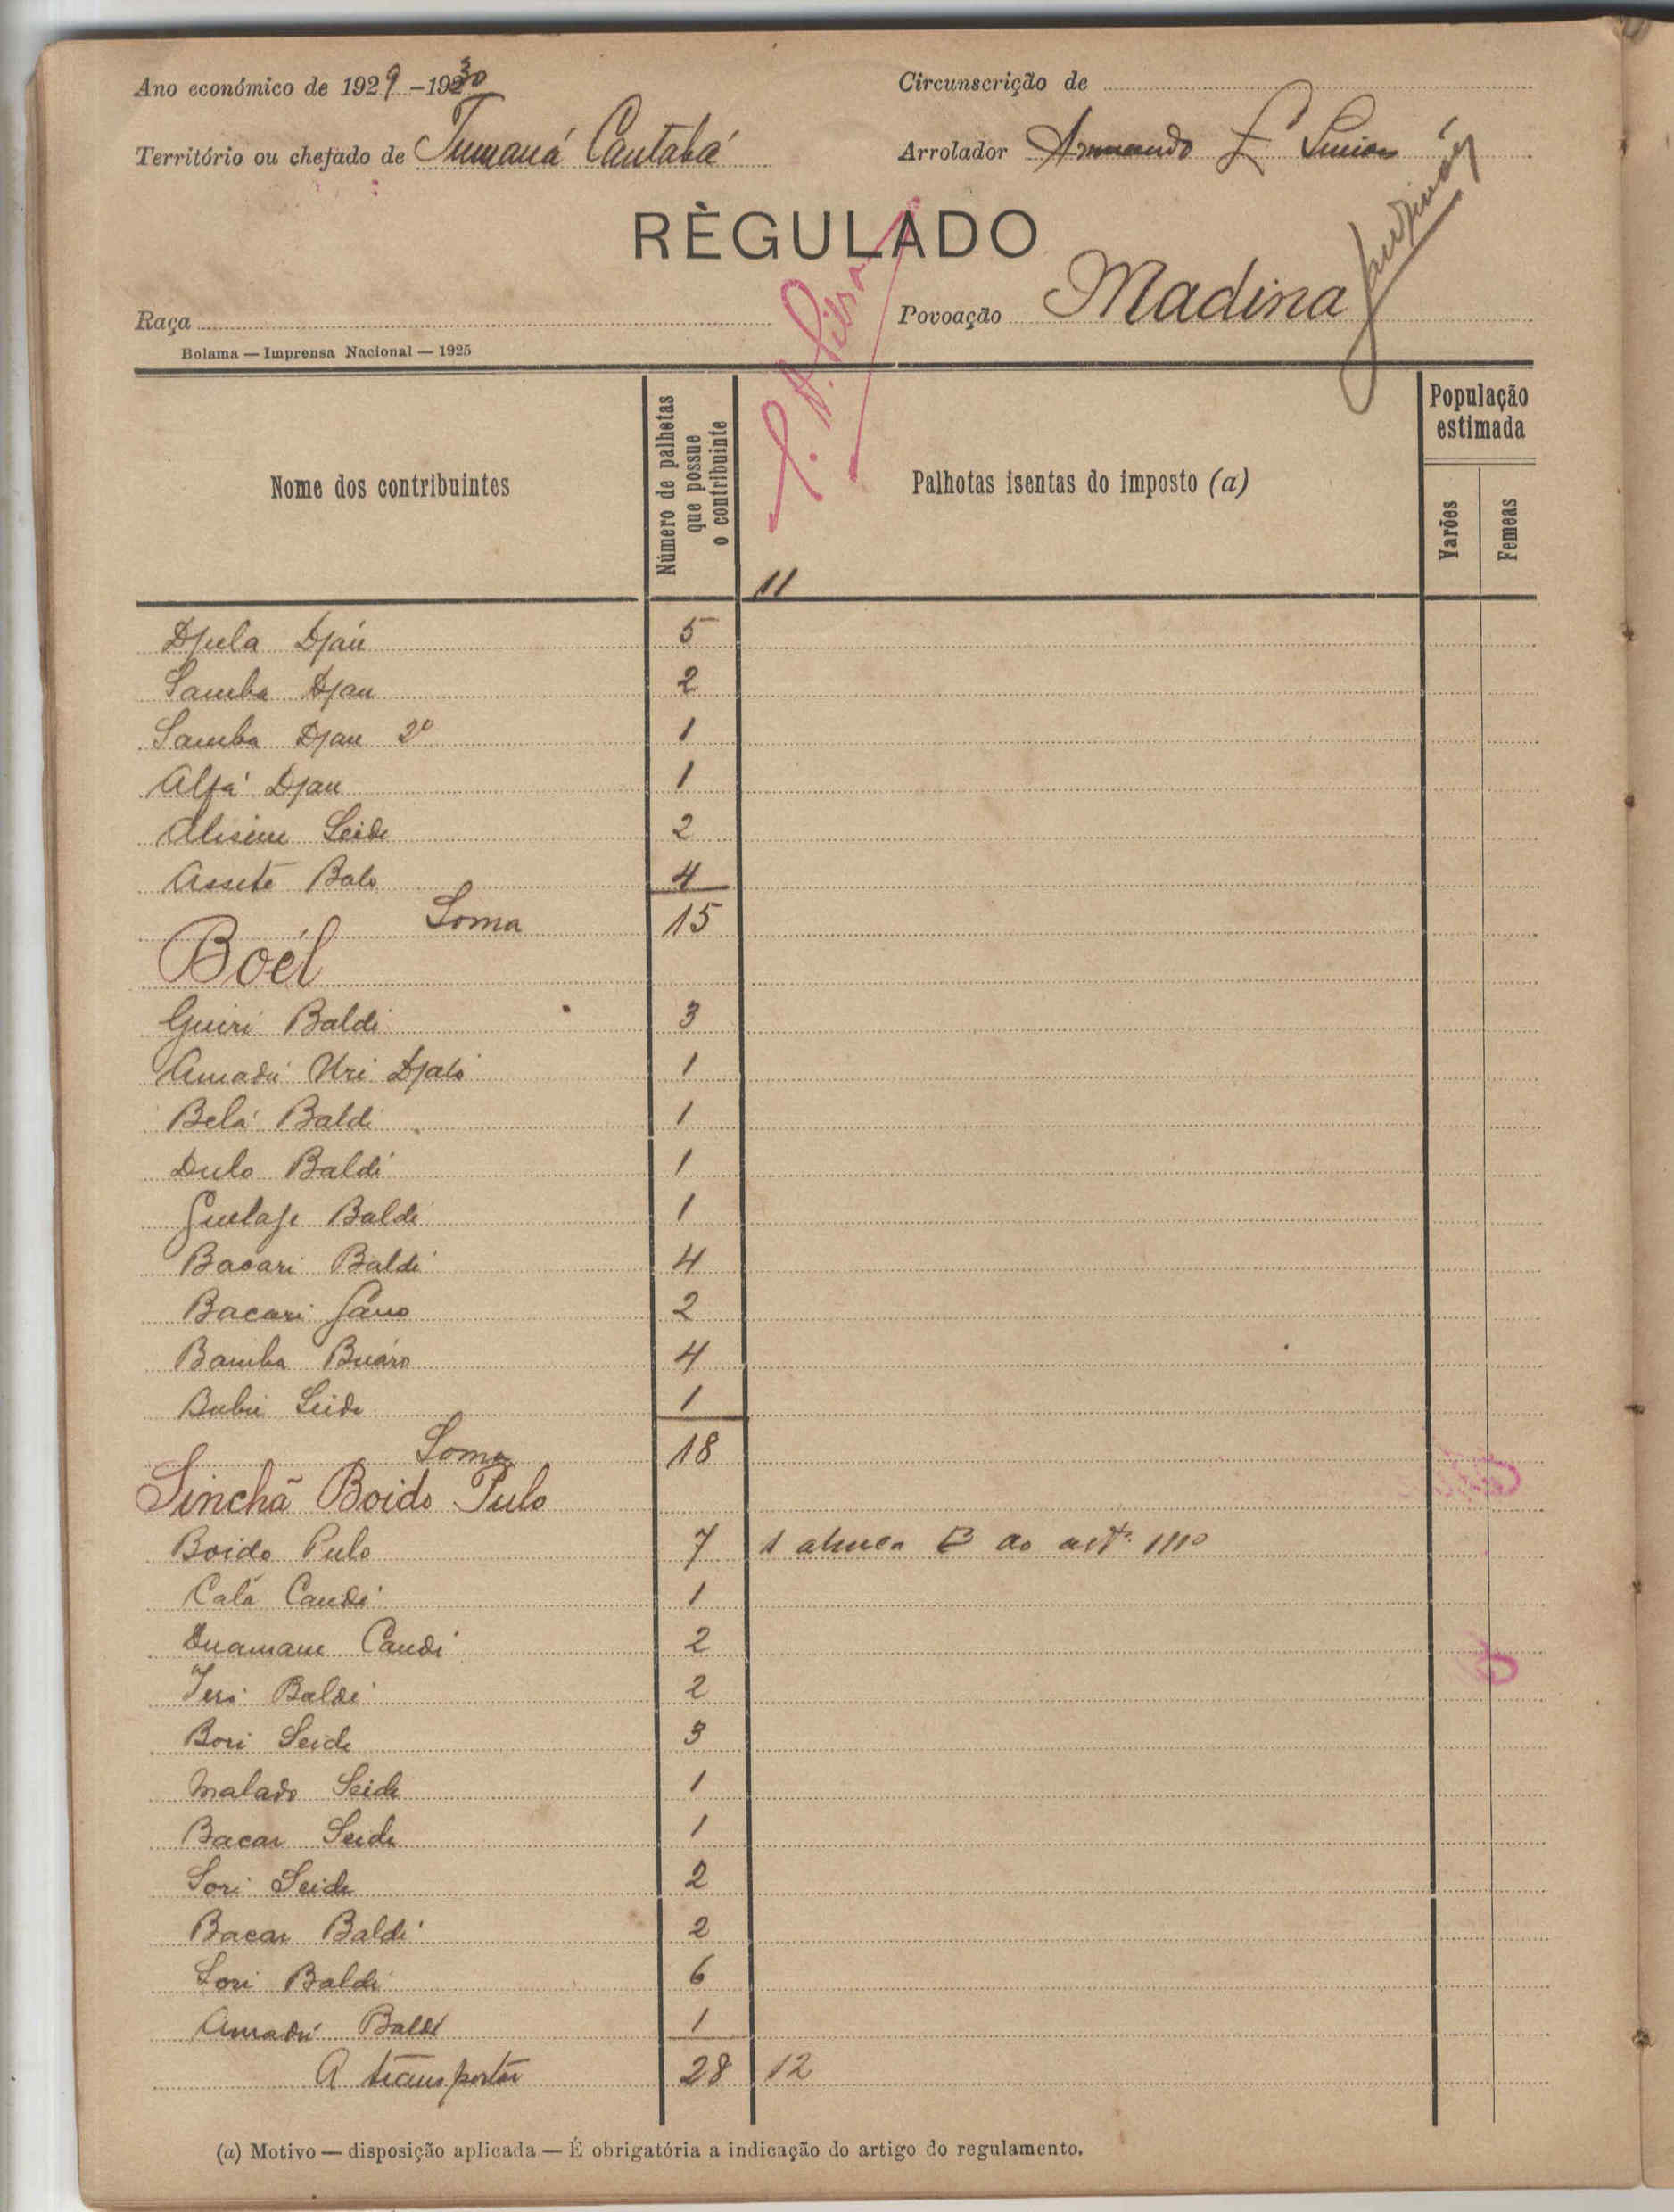 Ano económico de 1929-1930
Circunscrição de
Território ou chefado de Tumaná Cantabá
Arrolador Armando
RÈGULADO
Raça
Povoação Madina
Bolama — Imprensa Nacional — 1925
Nome dos contribuintes
Número de palhetas que possue o contribuinte
Palhotas isentas do imposto (a)
População estimada
Varões
Femeas
11
Djula Djaú 5
Samba Djau 2
Samba Djau 2º 1
Alfá Djau 1
Seide 2
Asseté Balo 4
Soma 15
Boél
Guiri Baldi 3
Amadú Uri Djaló 1
Belá Baldi 1
Dulo Baldi 1
Baldi 1
Bacari Baldi 4
Bacari Sano 2
Bamba Buáro 4
Bubú Seide 1
Soma 18
Sinchã Boido Pulo
Boido Pulo 7 1
Calá Candi 1
Duamane Candi 2
Baldé 2
Bori Seide 3
Malado Seide 1
Bacar Seide 1
Sori Seide 2
Bacar Baldi 2
Sori Baldi 6
Amadú Baldé 1
A transportar 28 12
(a) Motivo — disposição aplicada — É obrigatória a indicação do artigo do regulamento.